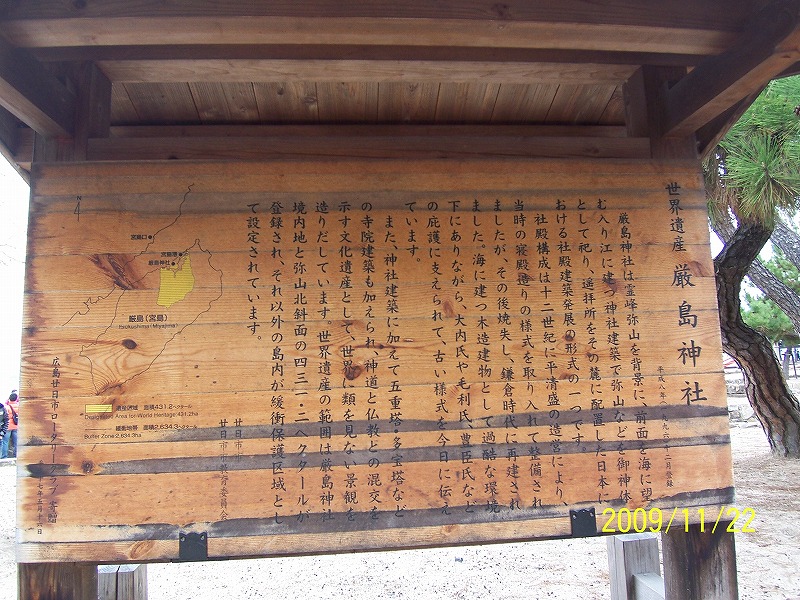 世界遺産 厳島神社
平成八年(一九九六)十二月登録
厳島神社は霊峰弥山を背景に、前面を海に望
む入り江に建つ神社建築で弥山などを御神体
として祀り、遥拝所をその麓に配置した日本に
おける社殿建築発展の形式の一つです。
社殿構成は十二世紀に平清盛の造営により、
当時の寝殿造りの様式を取り入れて整備され
ましたが、その後焼失し、鎌倉時代に再建され
ました。海に建つ木造建物として過酷な環境
下にありながら、大内氏や毛利氏、豊臣氏など
の庇護に支えられて、古い様式を今日に伝え
ています。
また、神社建築に加えて五重塔・多宝塔など
の寺院建築も加えられ、神道と仏教との混交を
示す文化遺産として、世界に類を見ない景観を
造りだしています。世界遺産の範囲は厳島神社
境内地と弥山北斜面の四三一・二ヘクタールが
登録され、それ以外の島内が緩衝保護区域とし
て設定されています。
廿日市市
廿日市市教育委員会
N
宮島口
宮島桟橋
厳島神社
厳島(宮島)
Itsukushima(Miyajima)
遺産区域 面積431.2ヘクタール
Designated Area for World Heritage:431.2ha
緩衝地帯 面積2,634.3ヘクタール
Buffer Zone:2,634.3ha
広島廿日市ロータリークラブ寄贈
2009/11/22